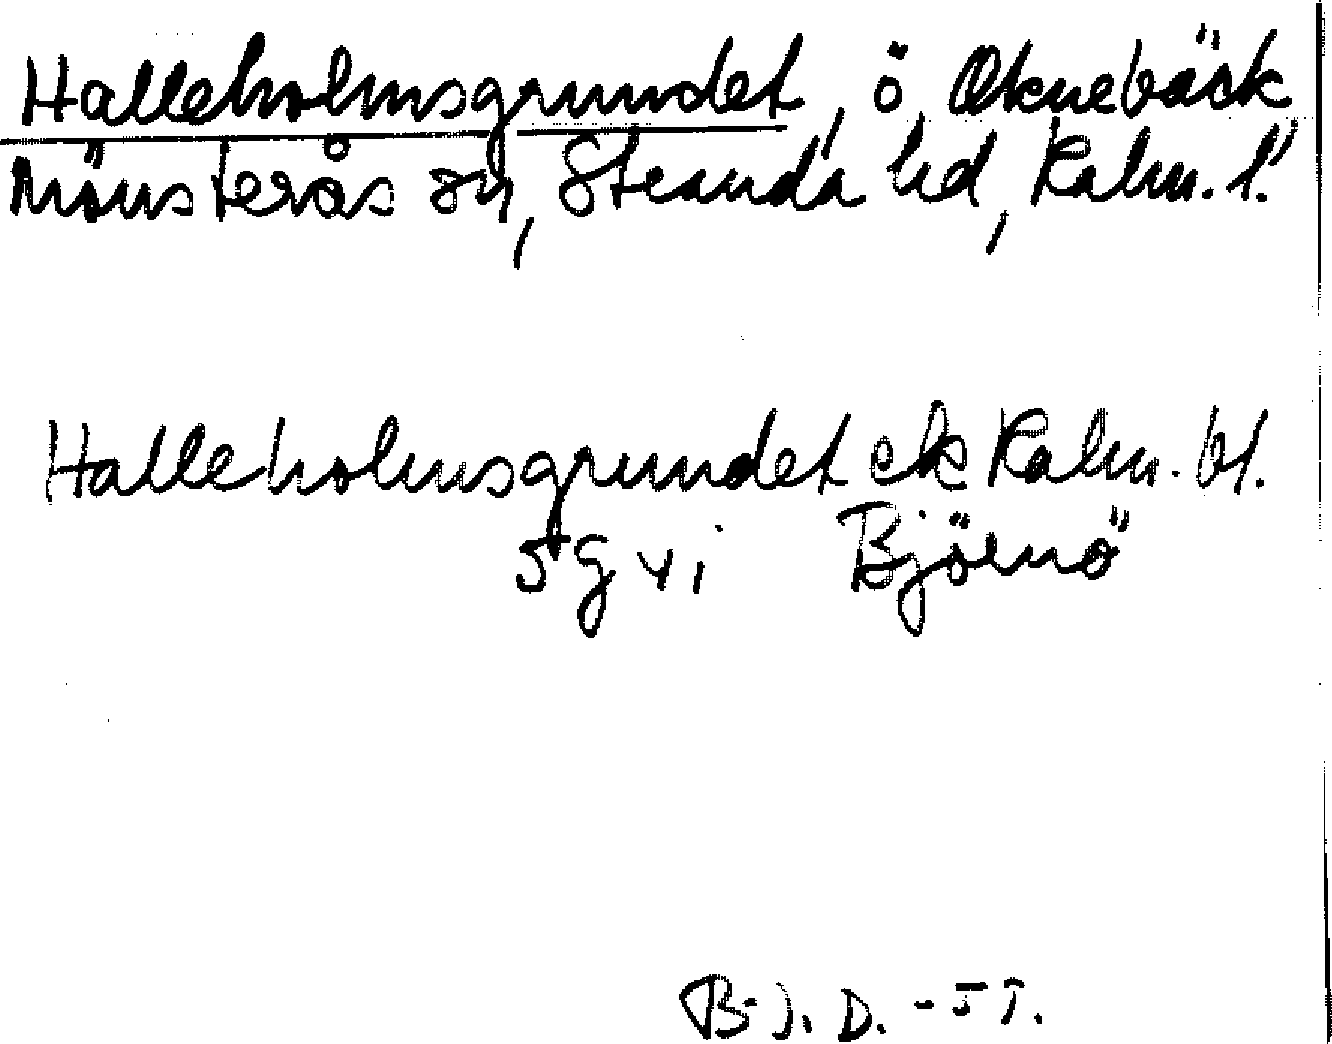 Halleholmsgrundet, ö, Oknebäck,
Mönsterås sn, Stranda hd, Kalm. l.
Halleholmsgrundet ek Kalm. bl.
5g vi Björnö
B-J. D. - 57.